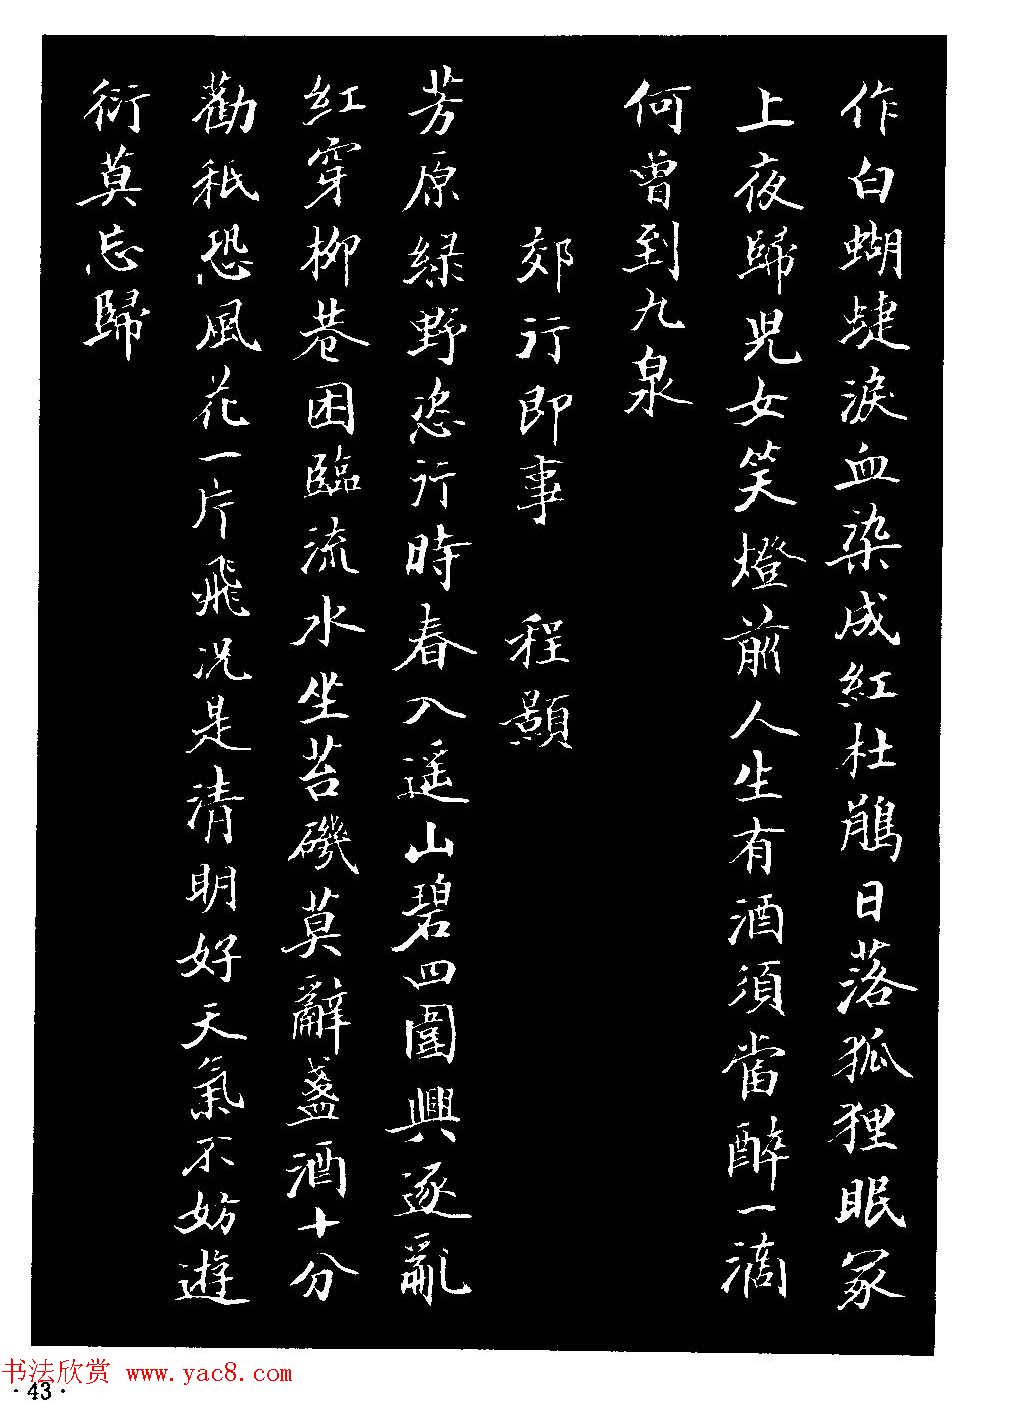 作白蝴蜨淚血染成紅杜鵑日落狐狸眠冢
上夜歸児女笑燈前人生有酒須當醉一滴
何曾到九泉
郊行即事 程顥
芳原綠野恣行時春入遥山碧四圍興逐亂
紅穿柳巷困臨流水坐苔磯莫辭盞酒十分
勸秖恐風花一片飛况是清明好天氣不妨遊
衍莫忘歸
书法欣赏 www.yac8.com
·43·